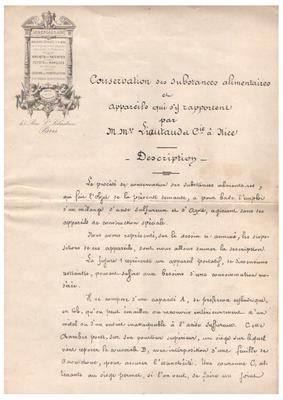 Conservation des substances alimentaires
et
appareils qui s'y rapportent
par
M. Mrs Lieutaud & Cie à Nice
Description
Le procédé de conservation des substances alimentaires,
qui fait l'objet de la présente demande, a pour base l'emploi
d'un mélange d'acide sulfureux et d'
dans
des appareils de construction spéciale.
Nous avons représenté, sur le dessin ci-annexé, les dispo-
sitions de ces appareils, dont nous allons donner la description.
La figure 1 représente un appareil portatif, de dimensions
restreintes, pouvant suffire aux besoins d'une consommation
Il se compose d'une capacité A, de préférence cylindrique,
en tôle, qu'on peut émailler ou recouvrir intérieurement d'un
métal ou d'un enduit inattaquable à l'acide sulfureux. Cette
chambre porte, sur son pourtour supérieur, un siège sur lequel
vient reposer le couvercle B, avec interposition d'une feuille de
caoutchouc, pour assurer l'étanchéité. Une couronne C,
tenante au siège permet, si l'on veut, de faire un joint
Paris